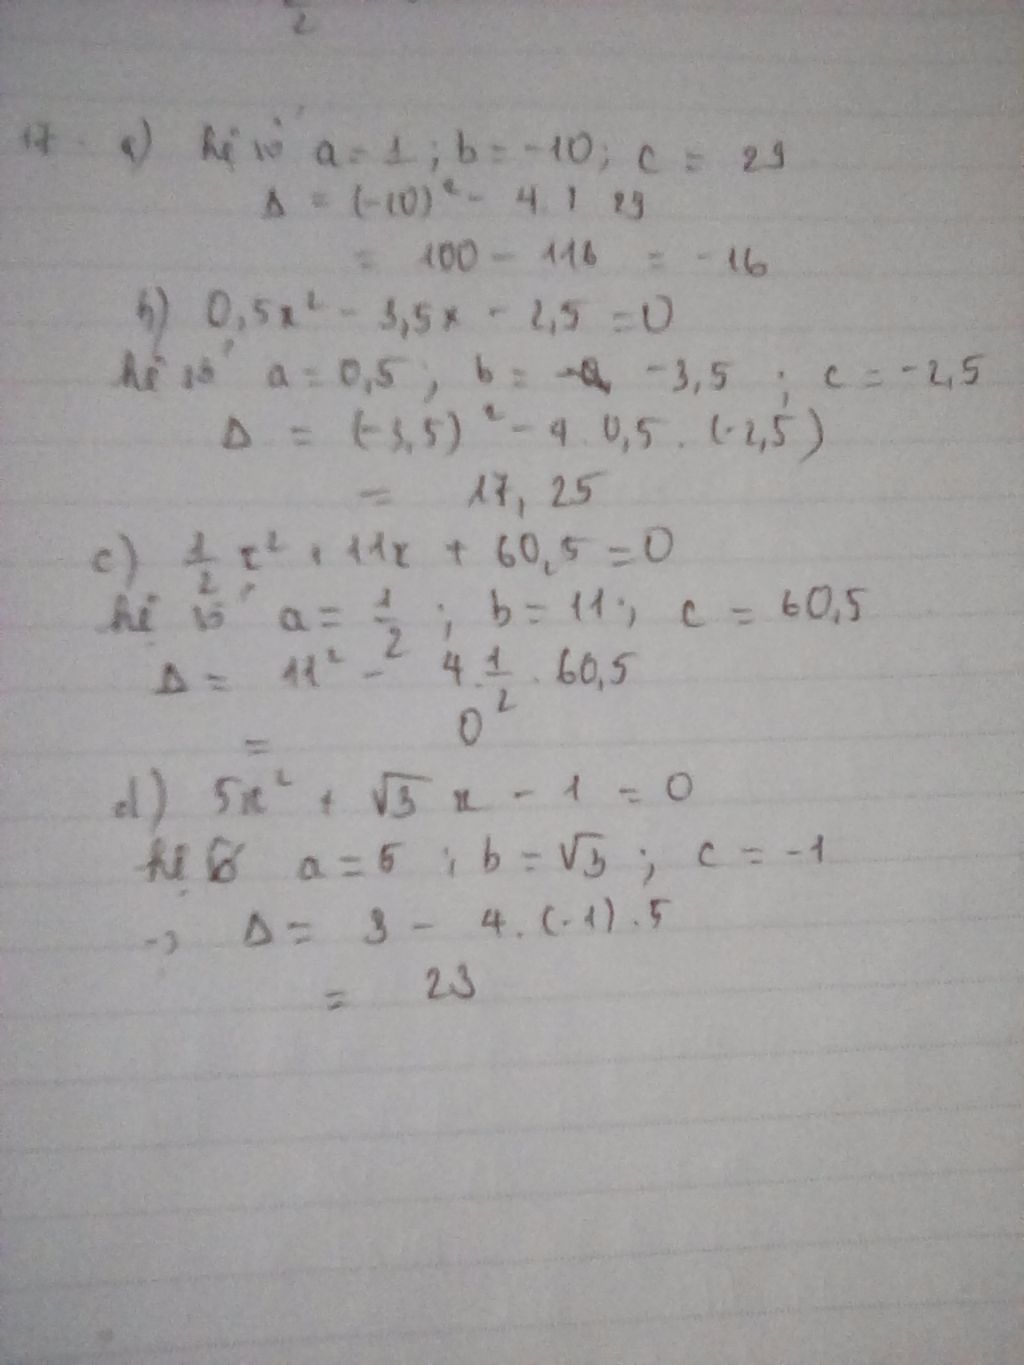 2
17. a) hệ số a = 1 ; b = -10 ; c = 29
Δ = (-10)² - 4. 1 29
= 100 - 116 = -16
b) 0,5x² - 3,5x - 2,5 = 0
hệ số a = 0,5 ; b = -3,5 ; c = -2,5
Δ = (-3,5)² - 4. 0,5 . (-2,5)
= 17,25
c) 1/2 x² + 11x + 60,5 = 0
hệ số a = 1/2 ; b = 11 ; c = 60,5
Δ = 11² - 4. 1/2 . 60,5
= 0
d) 5x² + √3 x - 1 = 0
hệ số a = 5 ; b = √3 ; c = -1
→ Δ = 3 - 4. (-1) . 5
= 23